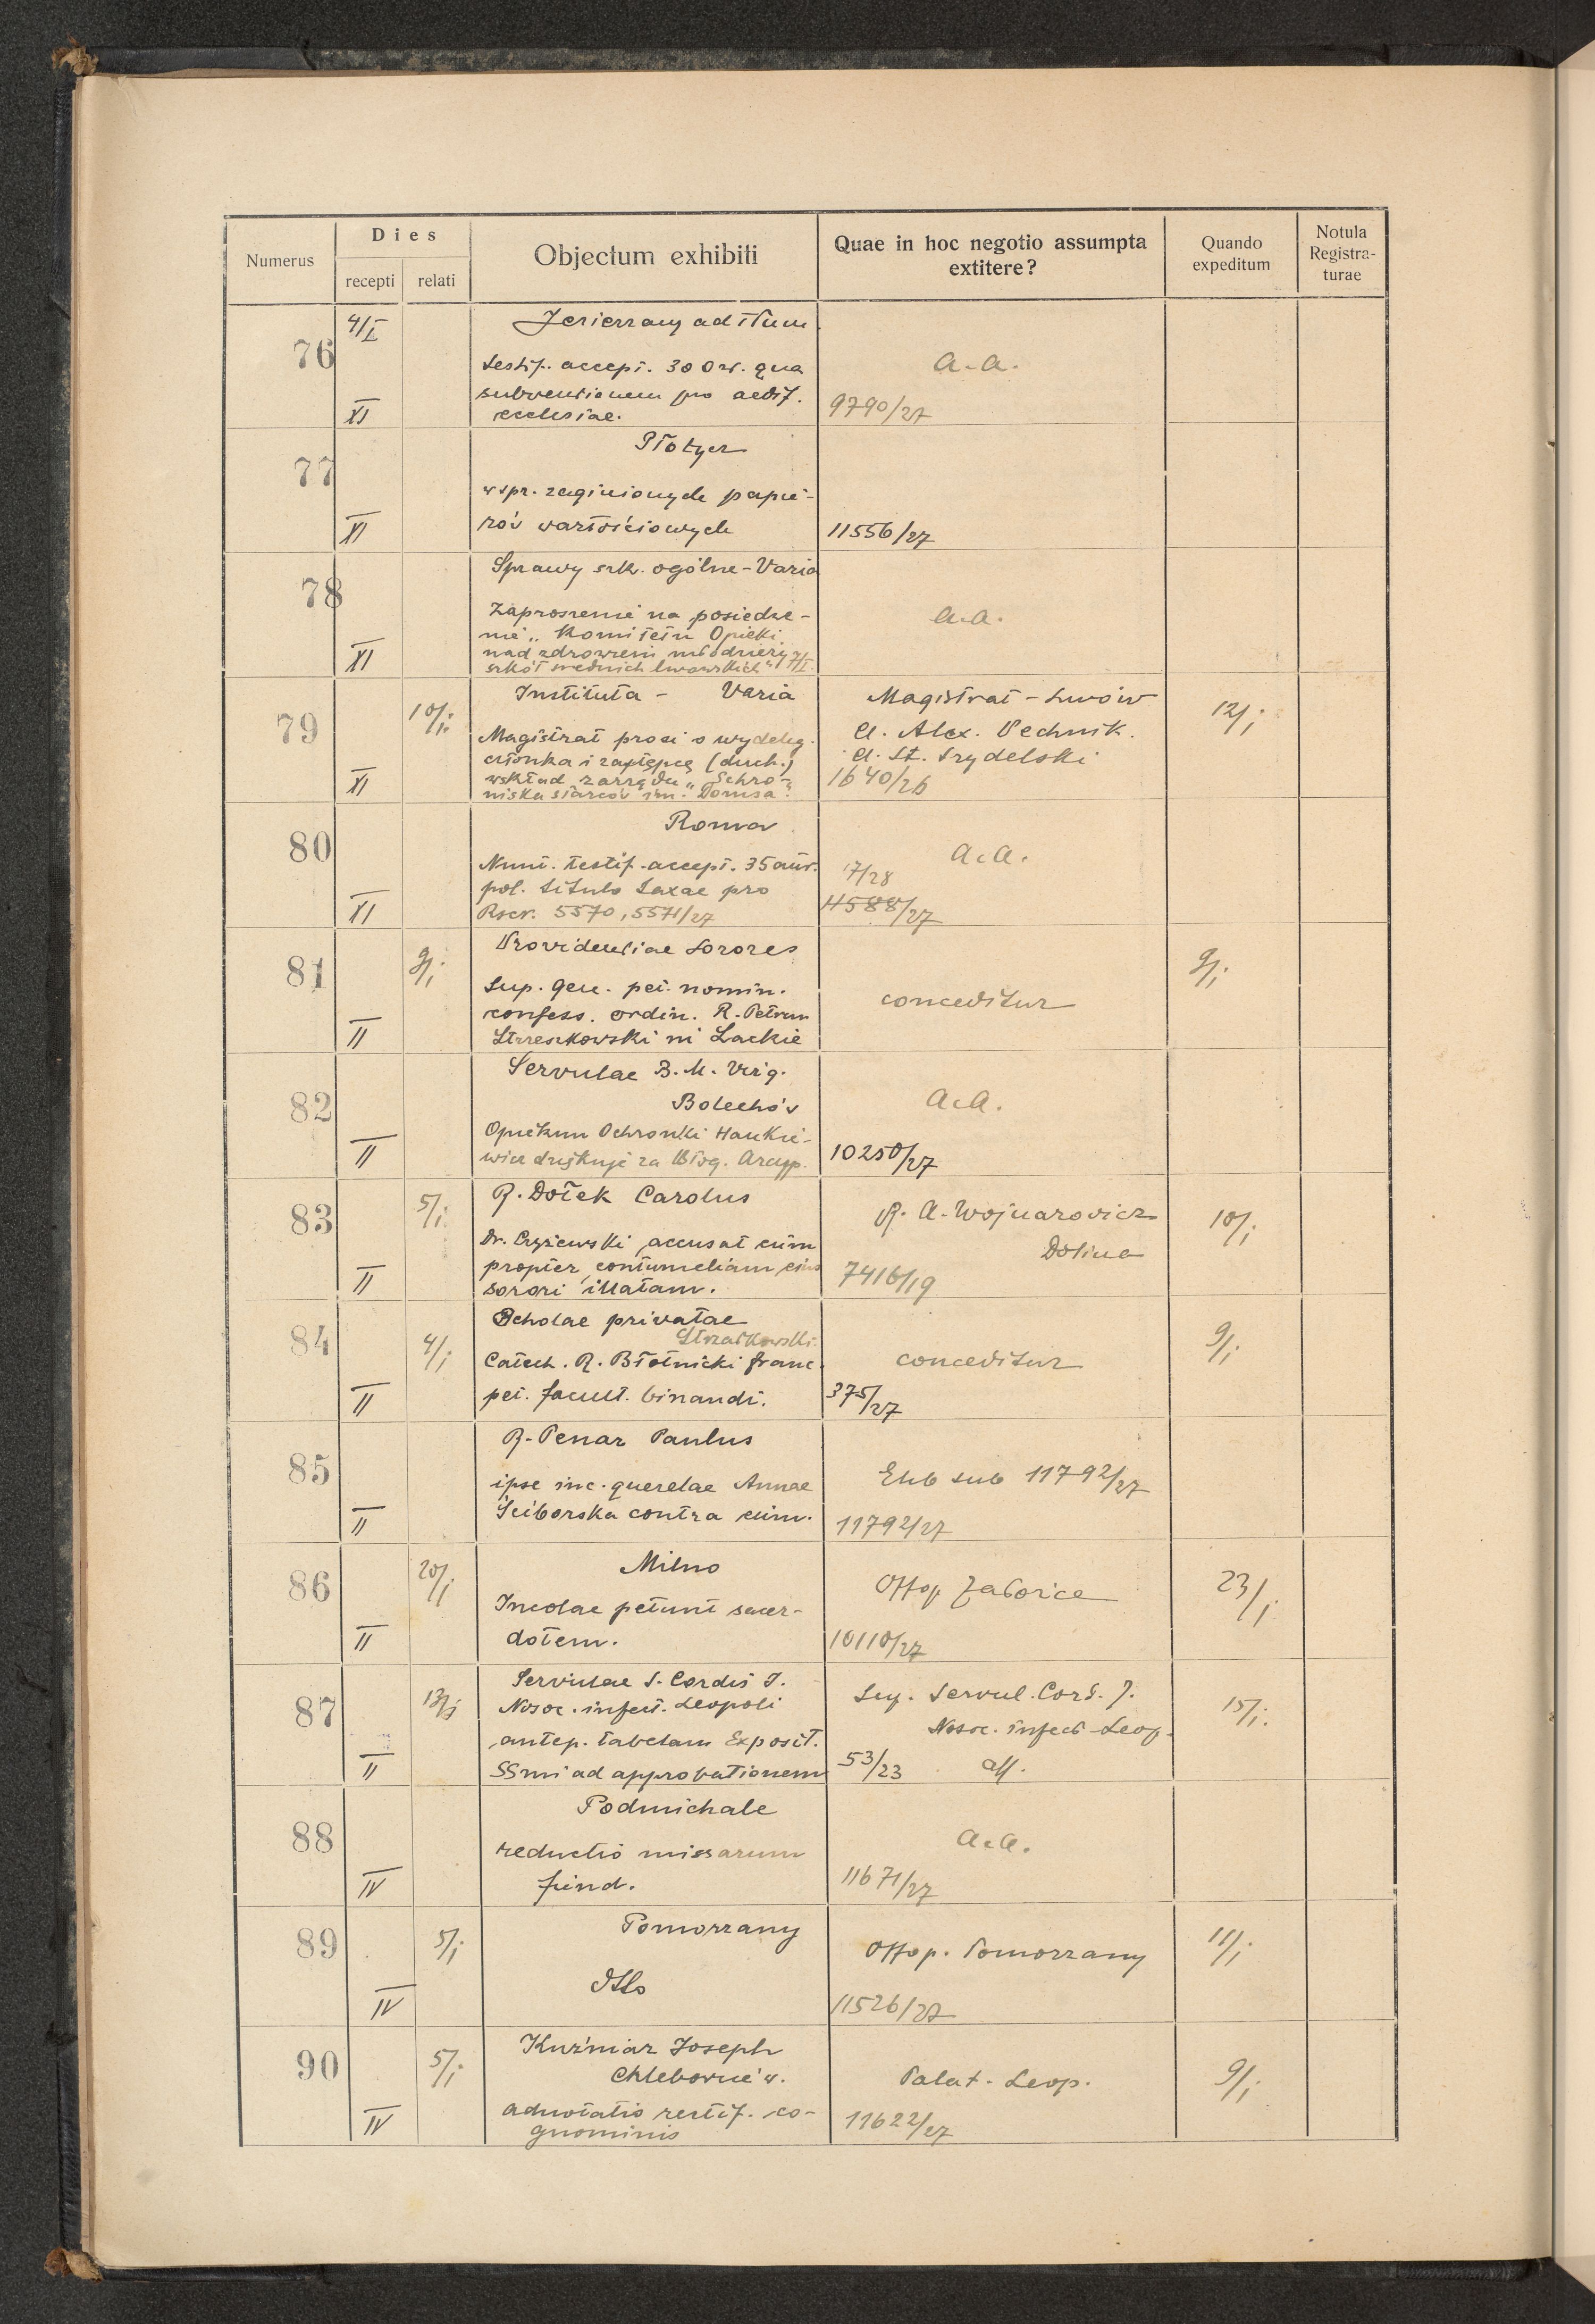 Numerus
Dies
recepti
relati
Objectum exhibiti
Quae in hoc negotio assumpta
extitere?
Quando
expeditum
Notula
Registra-
turae
76
4/I
XI
Jezierzany ad Płum
testif. accept. 300 zł. qua
subventionem pro aedif.
ecclesiae.
a.a.
9790/27
77
XI
Płotycz
w spr. zaginionych papie-
rów wartościowych
11556/27
78
XI
Sprawy szk. ogólne - Varia
Zaproszenie na posiedze-
nie „Komitetu Opieki
nad zdrowiem młodzieży
szkół średnich lwowskich" 7/I.
a.a.
79
XI
10/I
Instituta - Varia
Magistrat prosi o wydeleg.
członka i zastępcę (duch.)
w skład zarządu „Schro-
niska starców im. Domsa".
Magistrat - Lwów
a. Alex. Pechnik.
a. St. Szydelski
1640/26
12/I
80
XI
Roma
Nunt. testif. accept. 35 aur.
pol. titulo taxae pro
Rscr. 5570, 5571/27
a.a.
17/28
11588/27
81
II
9/I
Providentiae Sorores
Sup. gen. pet. nomin.
confess. ordin. R. Petrum
Strzeszkowski in Lackie
conceditur
9/I
82
II
Servulae B. M. Virg.
Bolechów
Opiekun Ochronki Hankie-
wicz dziękuje za Błog. Arcyp.
a.a.
10250/27
83
II
5/I
R. Dołek Carolus
Dr. Czyżewski accusat eum
propter contumeliam eius
sorori illatam.
R. A. Wojnarowicz
Dolina
7416/19
10/I
84
II
4/I
Scholae privatae
Strzałkowski.
Catech. R. Błotnicki franc.
pet. facult. binandi.
conceditur
375/27
9/I
85
II
R. Penar Paulus
ipse inc. querelae Annae
Ściborska contra eum.
Elib sub 11792/27
11792/27
86
II
20/I
Milno
Incolae petunt sacer-
dotem.
Offop. Załoźce
10110/27
23/I
87
II
13/I
Servulae S. Cordis J.
Nosoc. infect. Leopoli
antep. tabelam Exposit.
SSmi ad approbationem
Sup. Servul. Cord. J.
Nosoc. infect. Leop.
53/23
all.
15/I.
88
IV
Podmichale
reductio missarum
fund.
a.a.
11671/27
89
IV
5/I
Pomorzany
Offop. Pomorzany
11526/27
11/I
90
IV
5/I
Kuźniar Joseph
Chlebowic św.
adnotatio rectif. co-
gnominis
Palat. Leop.
11622/27
9/I